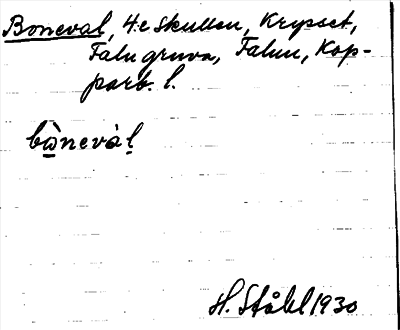 Boneval, 4:e skullen, Krysset,
Falu gruva, Falun, Kop-
parb. l.
bὼnevàl
H. Ståhl 1930